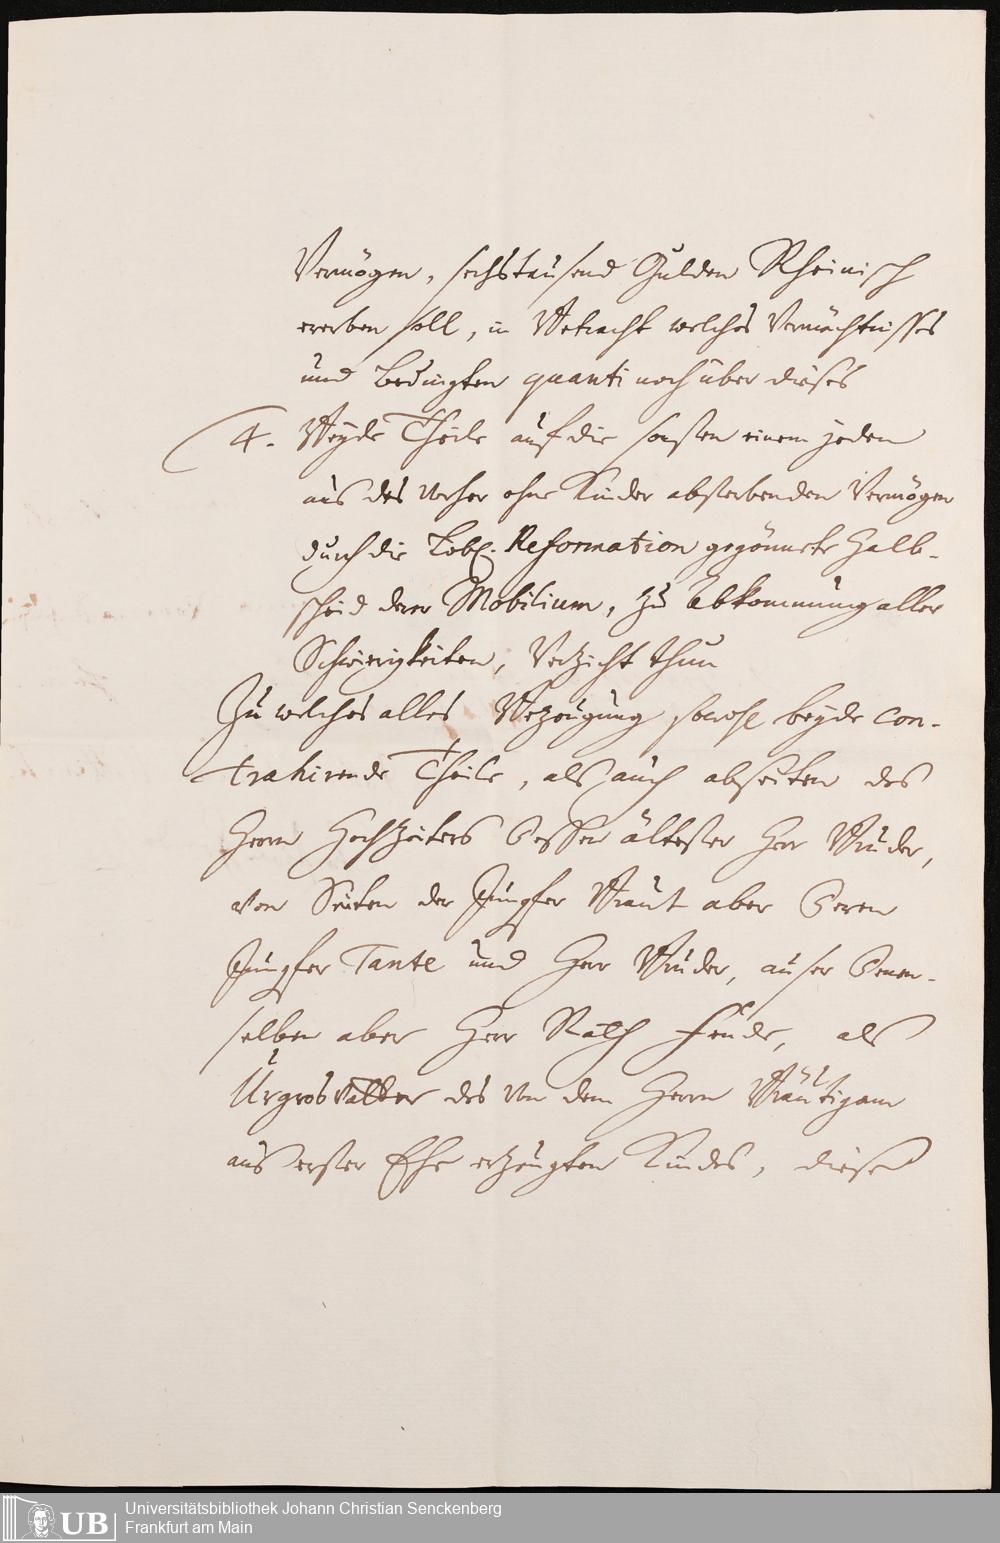 Vermögen, sechstausend Gulden Rheinisch
ererben soll, in Betracht welches Vermächtnisses
und bedingten quanti noch über dieses
4. Beyde Theile auf die sonsten einem jeden
aus des vorher ohne Kinder absterbenden Vermögen
durch die Löbl. Reformation gegönnete Halb-
scheid derer Mobilium, zu Abkommung aller
Schwierigkeiten, Verzicht thun
Zu welches alles Bezeugung sowohl beyde con-
trahirende Theile, als auch abseiten des
Herrn Hochzeiters Dessen ältester Herr Bruder,
von Seiten der Jungfer Braut aber Deren
Jungfer Tante und Herr Bruder, auser Denen-
selben aber Herr Rath Fende, als
Urgrosvatter des von dem Herrn Bräutigam
aus erster Ehe erzeugten Kindes, diese
UB
Universitätsbibliothek Johann Christian Senckenberg
Frankfurt am Main